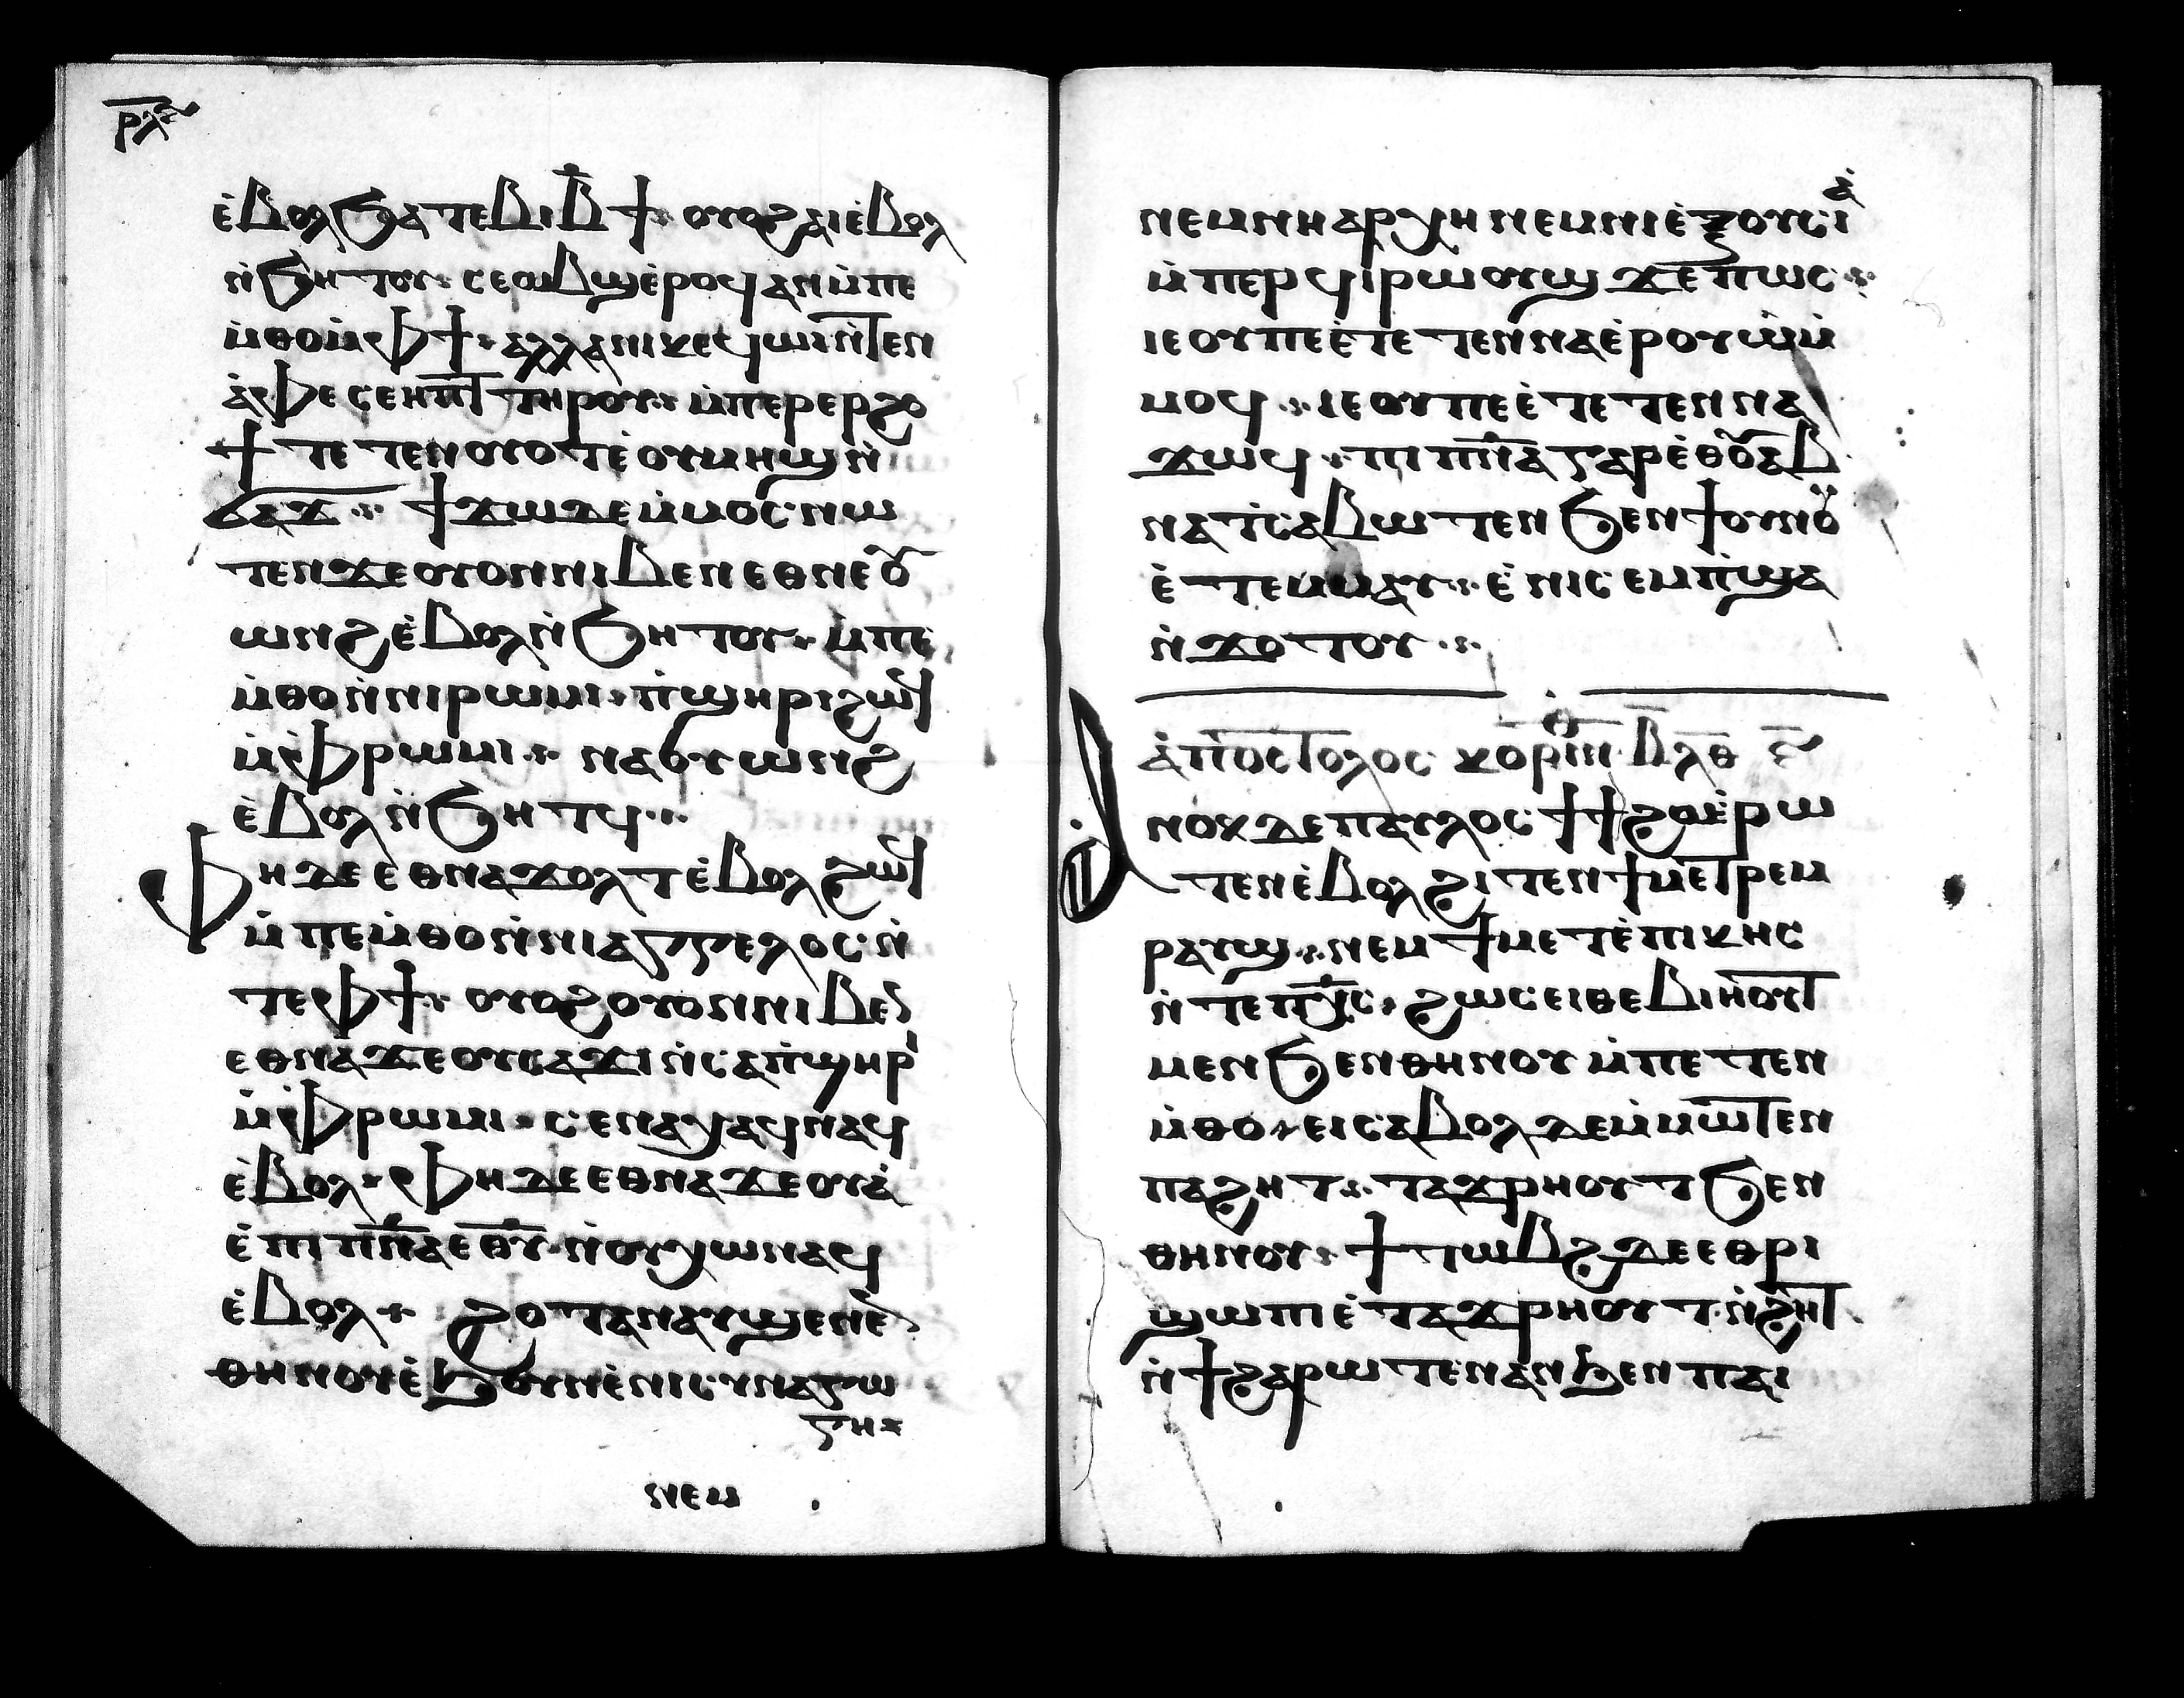 ⲣⲗⲋ
ⲉ̀ⲃⲟⲗϧⲁⲧⲉⲃⲓⲃ̅ϯ⁘ⲟⲩⲟϩⲁⲓⲉ̀ⲃⲟⲗ
ⲛ̀ϧⲏⲧⲟⲩ⁘ⲥⲉⲱⲃϣⲉ̀ⲣⲟϥⲁⲛⲙ̀ⲡⲉ
ⲙ̀ⲑⲟⲙ̀ⲫϯ⁘ⲁⲗⲗⲁⲛⲓⲕⲉϥⲱⲓⲛ̀ⲧⲉⲛ
ⲁ̀ⲫⲉⲥⲉⲏⲡⲧⲏⲣⲟⲩ⁘ⲙ̀ⲡⲉⲣⲉⲣϩⲟ
ϯⲧⲉⲧⲉⲛⲟⲩⲟⲧⲉ̀ⲟⲩⲙⲏϣⲛ̀
ϭⲁϫ⁘ϯϫⲱⲇⲉⲙ̀ⲙⲟⲥⲛⲱ
ⲧⲉⲛϫⲉⲟⲩⲟⲛⲛⲓⲃⲉⲛⲉⲑⲛⲉⲟⲩ
ⲱⲛϩⲉ̀ⲃⲟⲗⲛ̀ϧⲏⲧⲟⲩ⁘ⲙ̀ⲡⲉ
ⲙ̀ⲑⲟⲛ̀ⲛⲓⲣⲱⲙⲓ⁘ⲡ̀ϣⲏⲣⲓϩⲱϥ
ⲙ̀ⲫⲣⲱⲙⲓ⁘ⲛⲁϭⲩⲱⲛϩ
ⲉ̀ⲃⲟⲗⲛ̀ϧⲏⲧϥ⁘
ⲫⲏⲇⲉⲉⲑⲛⲁϫⲟⲗⲧⲉ̀ⲃⲟⲗϩⲱϥ
ⲙ̀ⲡⲉⲙ̀ⲑⲟⲛ̀ⲛⲓⲁⲅⲅⲉⲗⲟⲥⲛ̀
ⲧⲉⲫϯ⁘ⲟⲩⲟϩⲟⲩⲟⲛⲛⲓⲃⲉⲛ
ⲉⲑⲛⲁϫⲉⲟⲩⲥⲁϫⲓⲛ̀ⲥⲁⲡ̀ϣⲏⲣⲓ
ⲙ̀ⲫⲣⲱⲙⲓ⁘ⲥⲉⲛⲁⲭⲁϥⲛⲁϥ
ⲉ̀ⲃⲟⲗ⁘ⲫⲏⲇⲉⲉⲑⲛⲁϫⲉⲟⲩⲁ̀
ⲉ̀ⲡⲓⲡ̅ⲛ̅ⲁ̅ⲉ̅ⲑ̅ⲩ̅ⲛ̀ⲟⲩⲭⲱⲛⲁϥ
ⲉ̀ⲃⲟⲗ⁘ϩⲟⲧⲁⲛⲁⲩϣⲉⲛⲉⲛ
ⲑⲏⲛⲟⲩⲉ̀ϧⲟⲩⲛⲉ̀ⲛⲓⲥⲩⲛⲁⲅⲱ
ⲅⲏ⁘
ⲛⲉⲙ
ⲛⲉⲙⲛⲏⲁⲣⲭⲏⲛⲉⲙⲛⲓⲉ̀ⲝⲟⲩⲥⲓⲁ̀
ⲙ̀ⲡⲉⲣϥⲓⲣⲱⲟⲩϣϫⲉⲡⲱⲥ⁘
ⲓⲉⲟⲩⲡⲉⲉ̀ⲧⲉⲧⲉⲛⲛⲁⲉ̀ⲣⲟⲩⲱ̀ⲙ̀
ⲙⲟϥ⁘ⲓⲉⲟⲩⲡⲉⲉ̀ⲧⲉⲧⲉⲛⲛⲁ
ϫⲱϥ⁘ⲡⲓⲡ̅ⲛ̅ⲁ̅ⲅⲁⲣⲉ̀ⲑⲟⲩⲁⲃ
ⲛⲁⲧⲥⲁⲃⲱⲧⲉⲛϧⲉⲛϯⲟⲩⲛⲟⲩ
ⲉ̀ⲧⲉⲙⲙⲁⲩ⁘ⲉ̀ⲛⲓⲥⲉⲙⲡ̀ϣⲁ
ⲛ̀ϫⲟⲧⲟⲩ⁘
ⲁ̀ⲡⲟⲥⲧⲟⲗⲟⲥ ⲕⲟⲣⲓⲛ ⲃ ⲗⲑ ⲋ
ⲁⲛⲟⲕⲇⲉⲡⲁⲩⲗⲟⲥϯϯϩⲟⲉ̀ⲣⲱ
ⲧⲉⲛⲉ̀ⲃⲟⲗϩⲓⲧⲉⲛϯⲙⲉⲧⲣⲉⲙ
ⲣⲁⲩϣ⁘ⲛⲉⲙϯⲙⲉⲧⲉ̀ⲡⲓⲕⲏⲥ
ⲛ̀ⲧⲉⲡⲭ̅ⲥ̅⁘ϩⲱⲥⲉⲓⲑⲉⲃⲓⲏⲟⲩⲧ
ⲙⲉⲛϧⲉⲛⲑⲏⲛⲟⲩⲙ̀ⲡⲉⲧⲉⲛ
ⲙ̀ⲑⲟ⁘ⲉⲓⲥⲁⲃⲟⲗⲇⲉⲙ̀ⲙⲱⲧⲉⲛ
ⲡⲁϩⲏⲧ⁘ⲧⲁϫⲣⲏⲟⲩⲧϧⲉⲛ
ⲑⲏⲛⲟⲩ⁘ϯⲧⲱⲃϩⲇⲉⲉⲑⲣⲓ
ϣⲱⲡⲓⲉ̀ⲧⲁϫⲣⲏⲟⲩⲧⲛ̀ϩⲏⲧ
ⲛ̀ϯϩⲁⲣⲱⲧⲉⲛⲁⲛϧⲉⲛⲡⲁⲓ